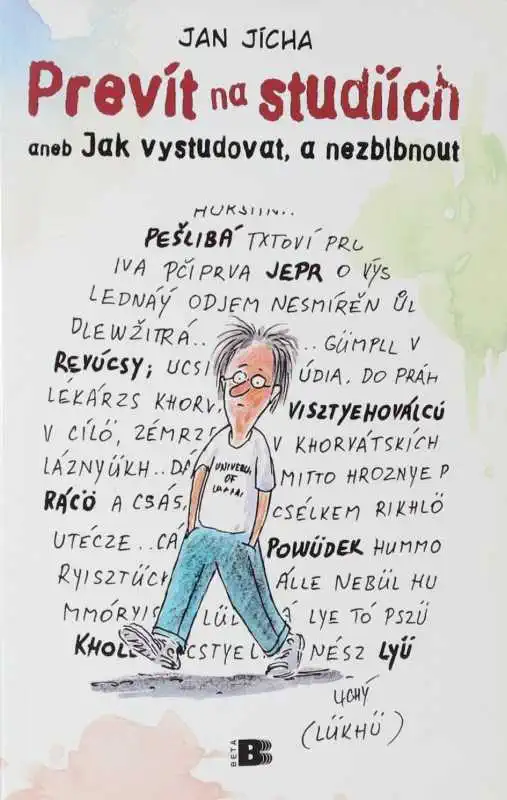 JAN JÍCHA
Prevít na studiích
aneb Jak vystudovat, a nezblbnout
PEŠLIBÁ TXTOVÍ PRC
IVA PČÍPRVA JEPR O VÝS
LEDNÁÝ ODJEM NESMÍRĚN ŮL
DLEWŽITRÁ.. ... GÜMPLL V
REVÚCSY; UCSI ÚDIA. DO PRÁH
LÉKÁRZS KHORV, VISZTYEHOVÁLCÚ
V CÍLÖ, ZÉMRZS V KHORVÁTSKÝCH
LÁZNYÜKH..DÁ MITTO HROZNYE P
UNIVERS.
OF
RÁCÖ A CSÁS, CSÉLKEM RIKHLÖ
UTÉCZE..CÁ POWÜDEK HUMMO
RYISZTÜCK ÁLLE NEBÜL HU
MMÓRYIS LÜL Á LYE TÓ PSZÜ
KHOLL CSTYEL NÉSZ LYÜ
ÜCHÝ
(LÜKHÜ)
BETA
B